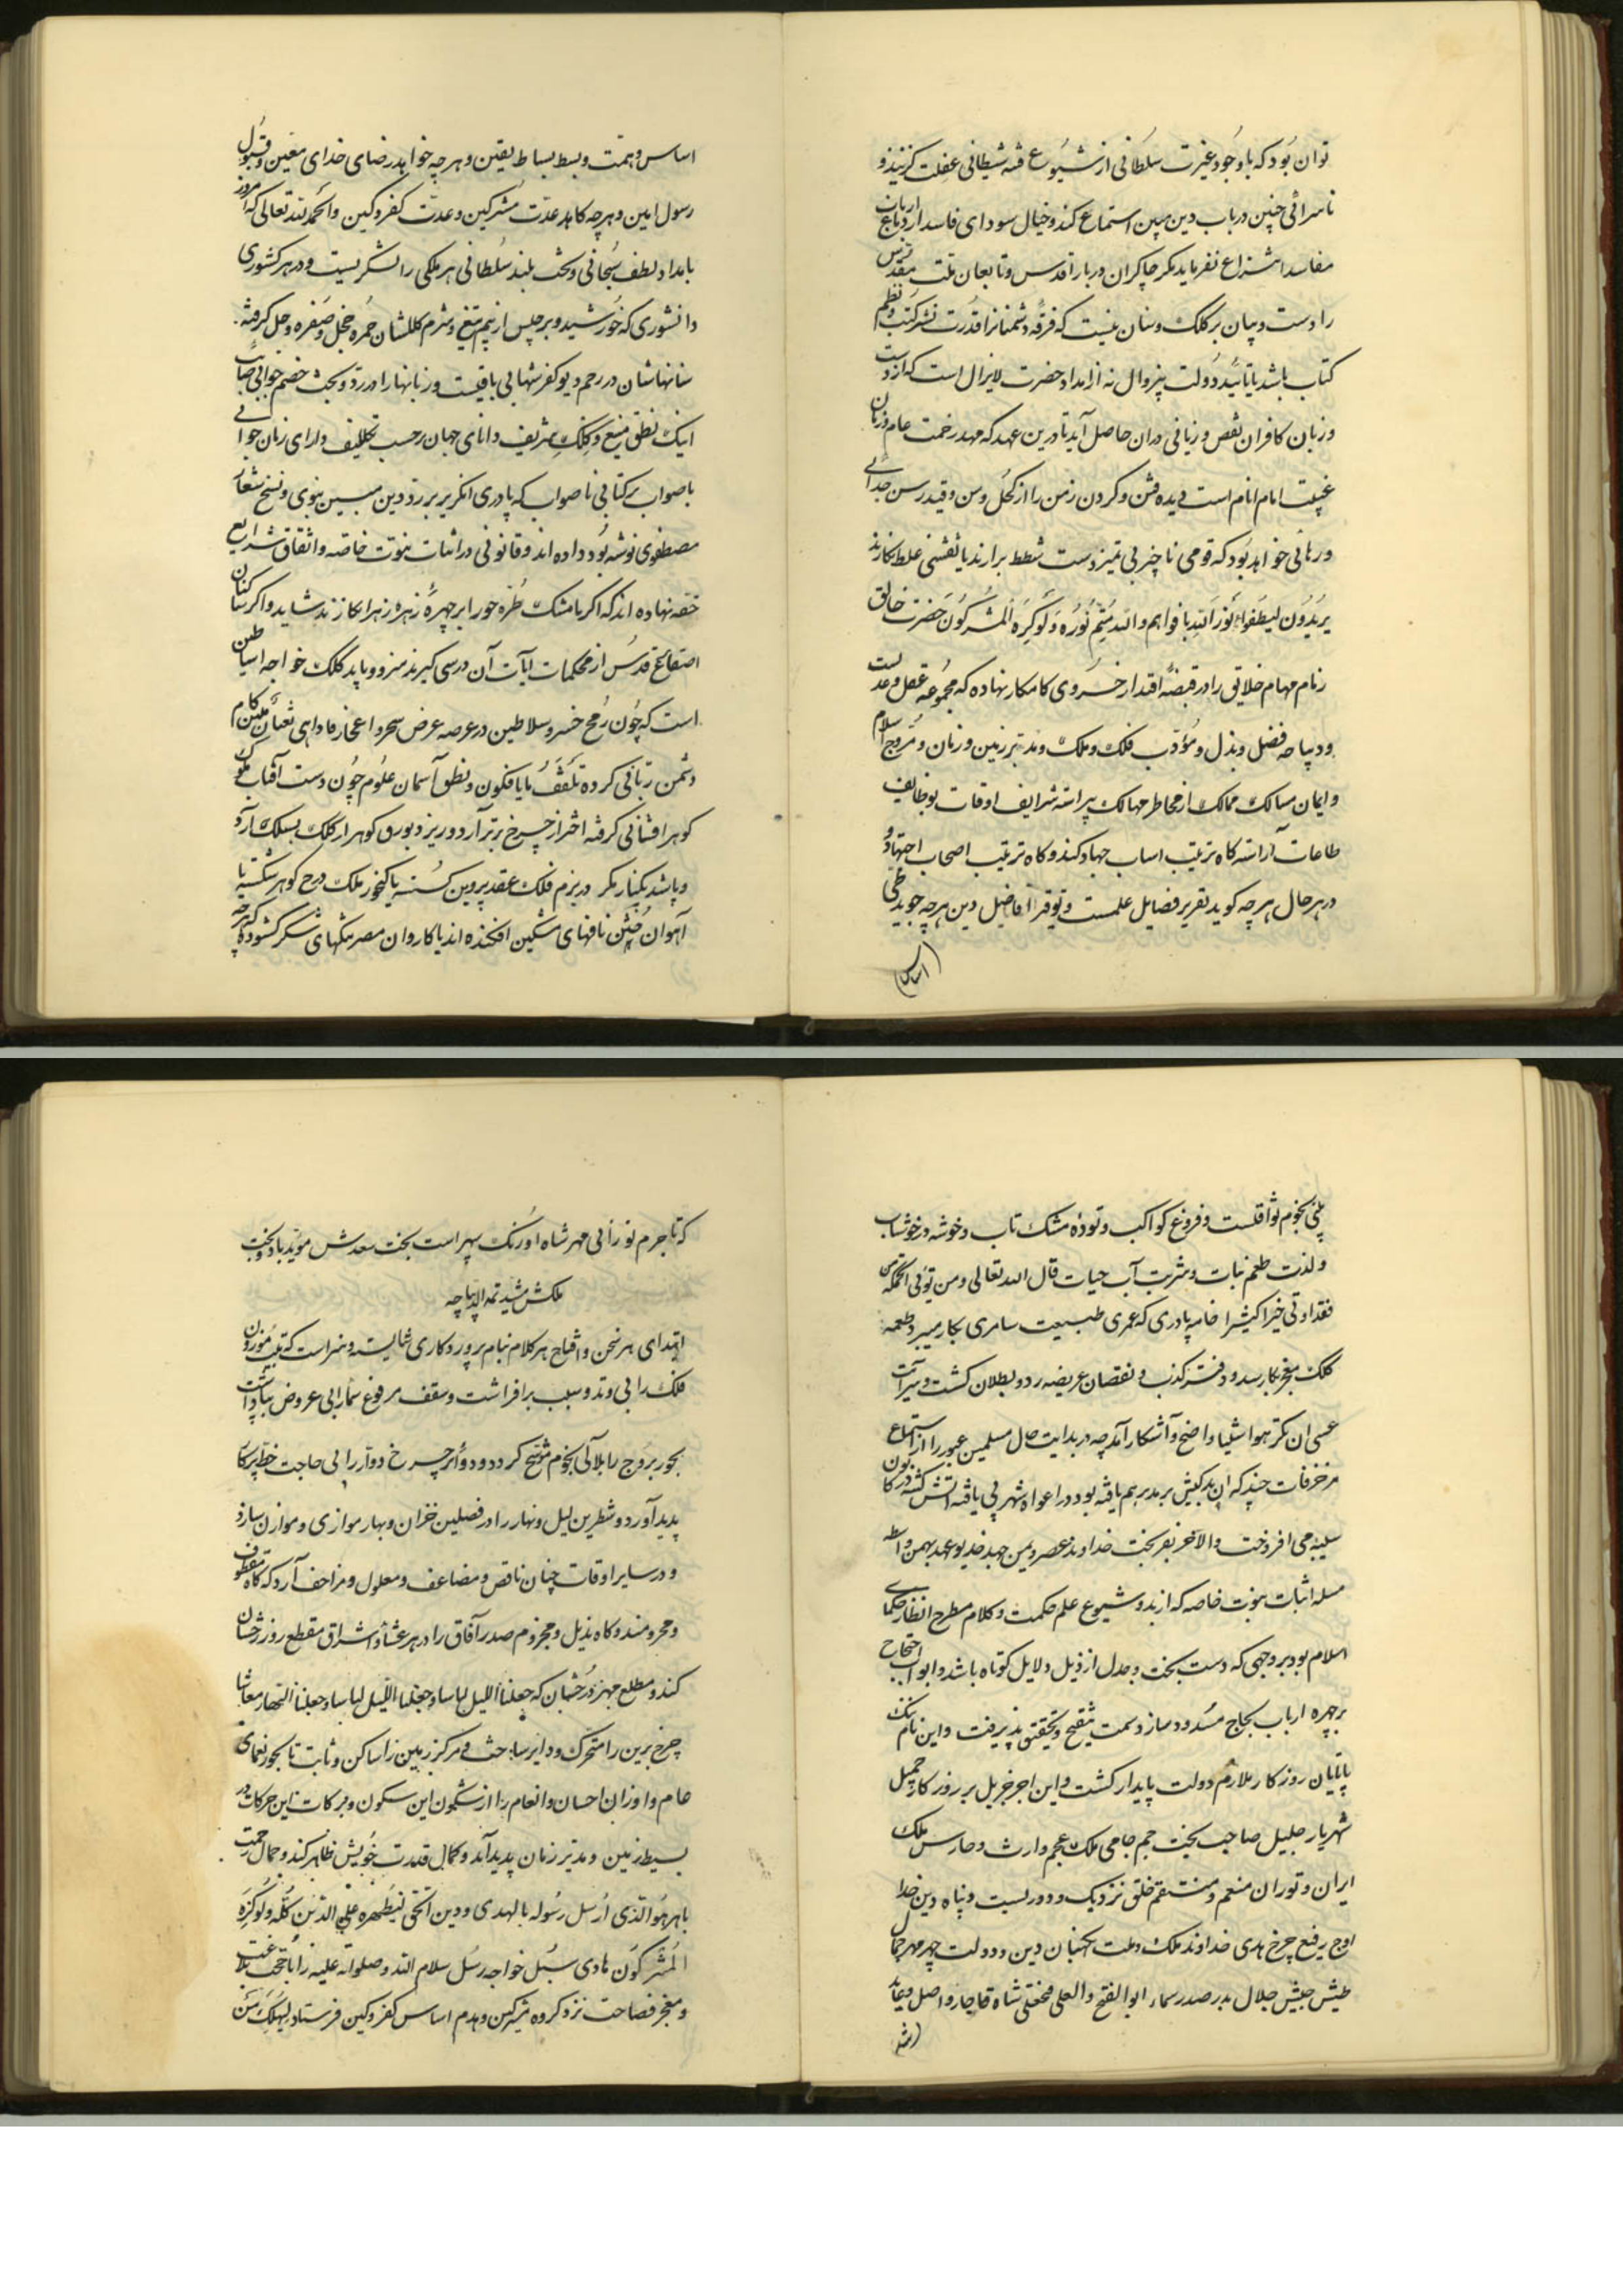 توان بود که با وجود غیرت سلطانی از شیوع فتنه شیطانی غفلت گزینند و
ناسزائی چنین در باب دین مبین استماع کنند و خیال سودای فاسد از دماغ ارباب
مفاسد انتزاع نفرماید مگر چاکران دربار اقدس و تابعان ملت مقدس
را دست و بیان بر کلک و بنان نیست که فرقه دشمنانرا قدرت نشر کتب و نظم
کتاب باشد یا تائید دولت بیزوال نه از امداد حضرت لایزال است که از دست
و زبان کافران نقص و زیانی دران حاصل آید تا درین عهد که مهد رحمت عام و زمان
غیبت امام انام است دیده فتن و گردن زمن را از کحل وسن و قید رسن جدائی
و رهائی خواهد بود که قومی ناچیز بی تمیز دست شطط برارند یا نقشی غلط نگارند
یریدون لیطفوا نور الله بافواههم والله متم نوره ولو کره المشرکون حضرت خالق
زمام مهام خلایق را در قبضه اقتدار خسروی کامکار نهاده که مجموعه عقل و عدلست
و دیباچه فضل و بذل و مؤدب فلک و ملک و مدبر زمین و زمان و مروج اسلام
و ایمان مسالک ممالک از مخاطر مهالک پیراسته شرایف اوقات بوظایف
طاعات آراسته گاه ترتیب اسباب جهاد کند و گاه تربیت اصحاب اجتهاد و
در هر حال هر چه گوید تقریر فضایل علمست و توقیر افاضل دین هر چه جوید
(اساس)
اساس و همت و بسط بساط یقین و هر چه خواهد رضای خدای معین و قبول
رسول امین و هر چه کاهد عدت مشرکین و عدت کفر و کین و الحمد لله تعالی که امروز
بامداد لطف سبحانی و بخت بلند سلطانی هر ملکی را لشکریست و در هر کشوری
دانشوری که خورشید و برجیس از بیم تیغ و شرم کلکشان حمره خجل و صفره وجل گرفته
سنانهاشان در رجم دیو کفر شهابی ثاقبست و زبانها را در رد و بحث خصم جوابی صائب
اینک نطق منیع و کلک شریف دانای جهان برحسب تکلیف دارای زمان جوابی
باصواب بر کتابی ناصواب که پادری انگریز بر رد دین مبین نبوی و نسخ شعار
مصطفوی نوشته بود داده اند و قانونی در اثبات نبوت خاصه و اتقان شرایع
حقه نهاده اند که اگر با مشک طره حورا بر چهره زهره زهرا نگارند شاید و اگر ساکنان
اصقاع قدس از محکمات آیات آن درسی گیرند سزد و باید کلک خواجه اساطین
است که چون رمح خسرو سلاطین در عرصه عرض سحر و اعجاز ما داهی ثعبان مبین کام
دشمن ربانی کرده تلقف ما یافکون و نطق آسمان علوم چون دست آفتاب ملوک
گوهر افشانی گرفته اختر از چرخ برتر آرد و ریزد بورق گوهر از کلک بسلک آرد
و پاشد بکنار مگر در بزم فلک عقد پروین گسسته یا گنجور ملک درج گوهر شکسته یا
آهوان ختن نافهای مشکین افکنده اند یا کاروان مصر تنگهای شکر گشوده اگر چه
نجوم ثواقبست و فروغ کواکب و توده مشک تاب و خوشه در خوشاب
و لذت طعم نبات و شربت آب حیات قال الله تعالی و من یؤتی الحکمة
فقد اوتی خیرا کثیرا خامه پادری که عمری طبیعت سامری بکار میبرد طعمه
کلک معجز نگار شد و دفتر کذب و نقصان عریضه رد و بطلان گشت و سر آیت
عسی ان تکرهوا شیئا واضح و آشکار آمد چه در بدایت حال مسلمین غیور را از استماع
مزخرفات چند که ان بدکیش بر مذبر هم بافته بود و در افواه شهر پی یافته آتش کینه در کانون
سینه می افروخت والاخر بفر بخت خداوند عصر و یمن جهد خدیو عهد بهمن واسطه
مسله اثبات نبوت خاصه که از بدو شیوع علم حکمت و کلام مطرح انظار حکمای
اسلام بود بر وجهی که دست بحث و جدل از ذیل دلایل کوتاه باشد و ابواب احتجاج
بر چهره ارباب لجاج مسدود سازد سمت تنقیح و تحقیق پذیرفت و این نام نیک
تا پایان روزگار ملازم دولت پایدار گشت و این اجر جزیل بر روزگار جمیل
شهریار جلیل صاحب بخت جم حامی ملک عجم وارث و حارس ملک
ایران و توران منعم و منتقم خلق نزدیک و دور لسبت و پناه دین خدا
اوج رفیع چرخ هدی خداوند ملک و ملت نگهبان دین و دولت چهر مهر جمال
طیش جیش جلال بدر صدر سماء ابو الفتح و العلی فتحعلی شاه قاجار واصل و عاید
(شد)
که تا جرم نورانی مهر شاه اورنگ سپهر است بخت سعدش موید باد و تخت
ملکش مشید تمه الدیباچه
ابتدای هر سخن و افتتاح هر کلام بنام پروردکاری شایسته و سزاست که بیت موزون
فلک را بی وتد و سبب برافراشت و سقف مرفوع سما را بی عروض بپا داشت
بحور بروج را بلآلی نجوم موشح کرد و دوائر چرخ دوار را بی حاجت خط پرگار
پدید آورد و شطرین لیل و نهار را در فصلین خزان و بهار موازی و موازن سازد
و در سایر اوقات چنان ناقص و مضاعف و معلول و مزاحف آرد که گاه مقطوف
و مخرومند و گاه مذیل و مجزوم صدر آفاق را در هر عشا و اشراق مقطع روز رخشان
کند و مطلع مهر درخشان که جعلنا اللیل لباسا و جعلنا اللیل لباسا و جعلنا النهار معاشا
چرخ برین را متحرک و دایر ساخت و مرکز زمین را ساکن و ثابت تا بحور نعمای
عام و اوزان احسان و انعام را از سکون این سکون و برکات این حرکات در
بسیط زمین و مدیر زمان پدید آمد و کمال قدرت خویش ظاهر کند و جمال رحمت
باهر هو الذی ارسل رسوله بالهدی و دین الحق لیظهره علی الدین کله ولو کره
المشرکون هادی سبل خواجه رسل سلام الله و صلواته علیه را با حجت بلاغت
و معجز فصاحت نزد گروه مشرکین و هدم اساس کفر و کین فرستاد لیهلک من